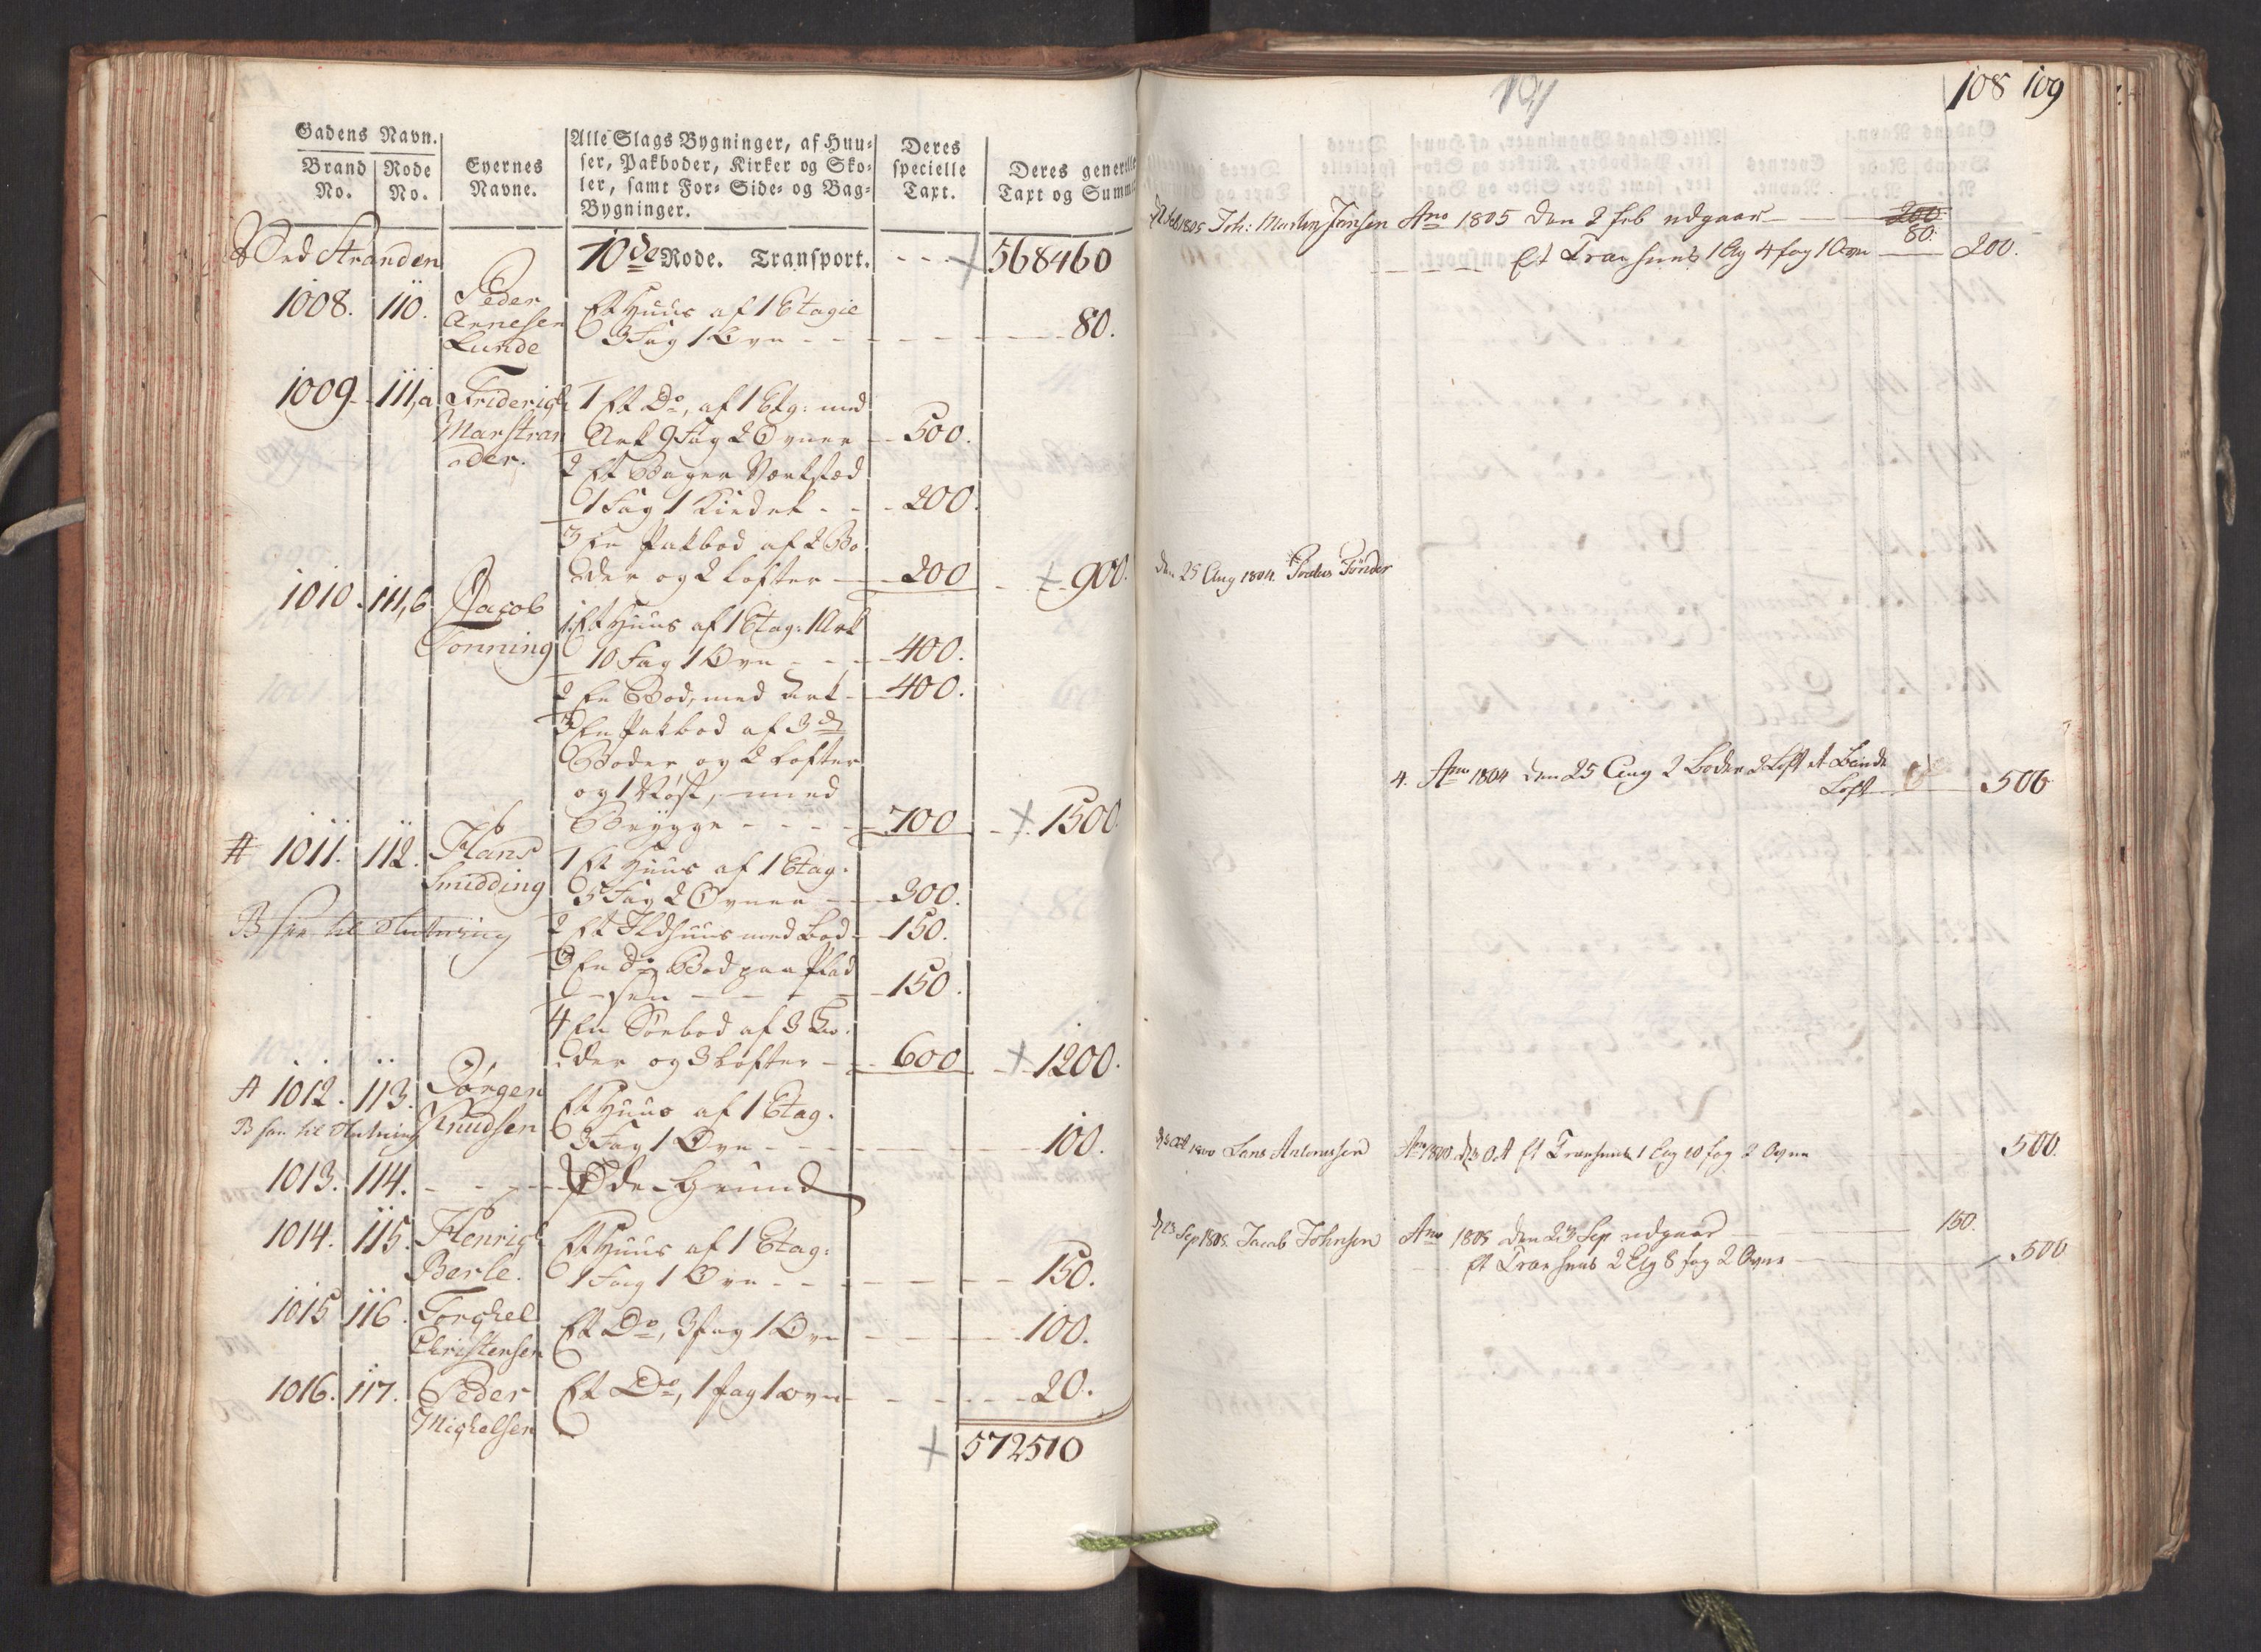 Gadens Navn.
Brand No.
Rode No.
Eyernes Navne.
Alle Slags Bygninger, af Huu-
ser, Pakboder, Kirker og Sko-
ler, samt For- Side- og Bag-
Bygninger.
Deres
specielle
Taxt.
Deres generelle
Taxt og Summa
Ved Stranden
10de Rode. Transport. - - - 568460
1008. 110. Peder
Arnesen
Lunde
Et Huus af 1 Etagie
3 Fag 1 Ovn - - - 80.
1009. 111,a Friderich
Marstran
der.
1 Et Do, af 1 Etg: med
Ark 9 Fag 2 Ovner - 500.
2 Et Bager Værksted
1 Fag 1 Kiedel - - 200.
3 En Pakbod af 2 Bo
der og 2 Lofter - 200 - 900.
1010. 111,b Jacob
Tonning
1 Et Huus af 1 Etag: 1 Ark
10 Fag 1 Ovn - - 400.
2 En Bod, med Ark - 400.
3 En Pakbod af 3de
Boder og 2 Lofter
og 1 Røst, med
Brygge - - - 700 - 1500.
# 1011. 112. Hans
Smidding
1 Et Huus af 1 Etag.
5 Fag 2 Ovner - 300.
B see til Slutning
2 Et Ildhuus med Bod - 150.
3 En do Bod paa Plad
sen - - - - 150.
4 En Søebod af 3 Bo-
der og 3 Lofter - 600 - 1200.
A 1012. 113. Jörgen
Knudsen
B see til Slutning
Et Huus af 1 Etag.
3 Fag 1 Ovn - - - 100.
1013. 114. - - - Øde Grund
1014. 115. Henrich
Berle.
Et Huus af 1 Etag:
1 Fag 1 Ovn - - - 150.
1015 116. Torchel
Christensen
Et Do, 3 fag 1 Ovn - - 100.
1016. 117. Peder
Michelsen
Et Do, 1 fag 1 Ovn - - - 20.
572510
108 109
Feb 1805 Joh: Martin Jansen Ano 1805 den 2 Feb udgaar - - 200
80.
Et Træe huus 1 Etg 4 fag 1 Ovn - 200.
den 25 Aug 1804. Tønder
4. Ano 1804 den 25 Aug 2 Boder 2 Loft et Binde
Loft - 500
d 3 Oct 1800 Lars Antonissen Ano 1800. d 3 Oct Et Træehuus 1 Etg 10 fag 2 Ovne 500.
d 23 Sep 1805. Jacob Johnsen Ano 1805 den 23 Sep udgaar - 150.
Et Træe huus 2 Etg 8 fag 2 Ovne - 500